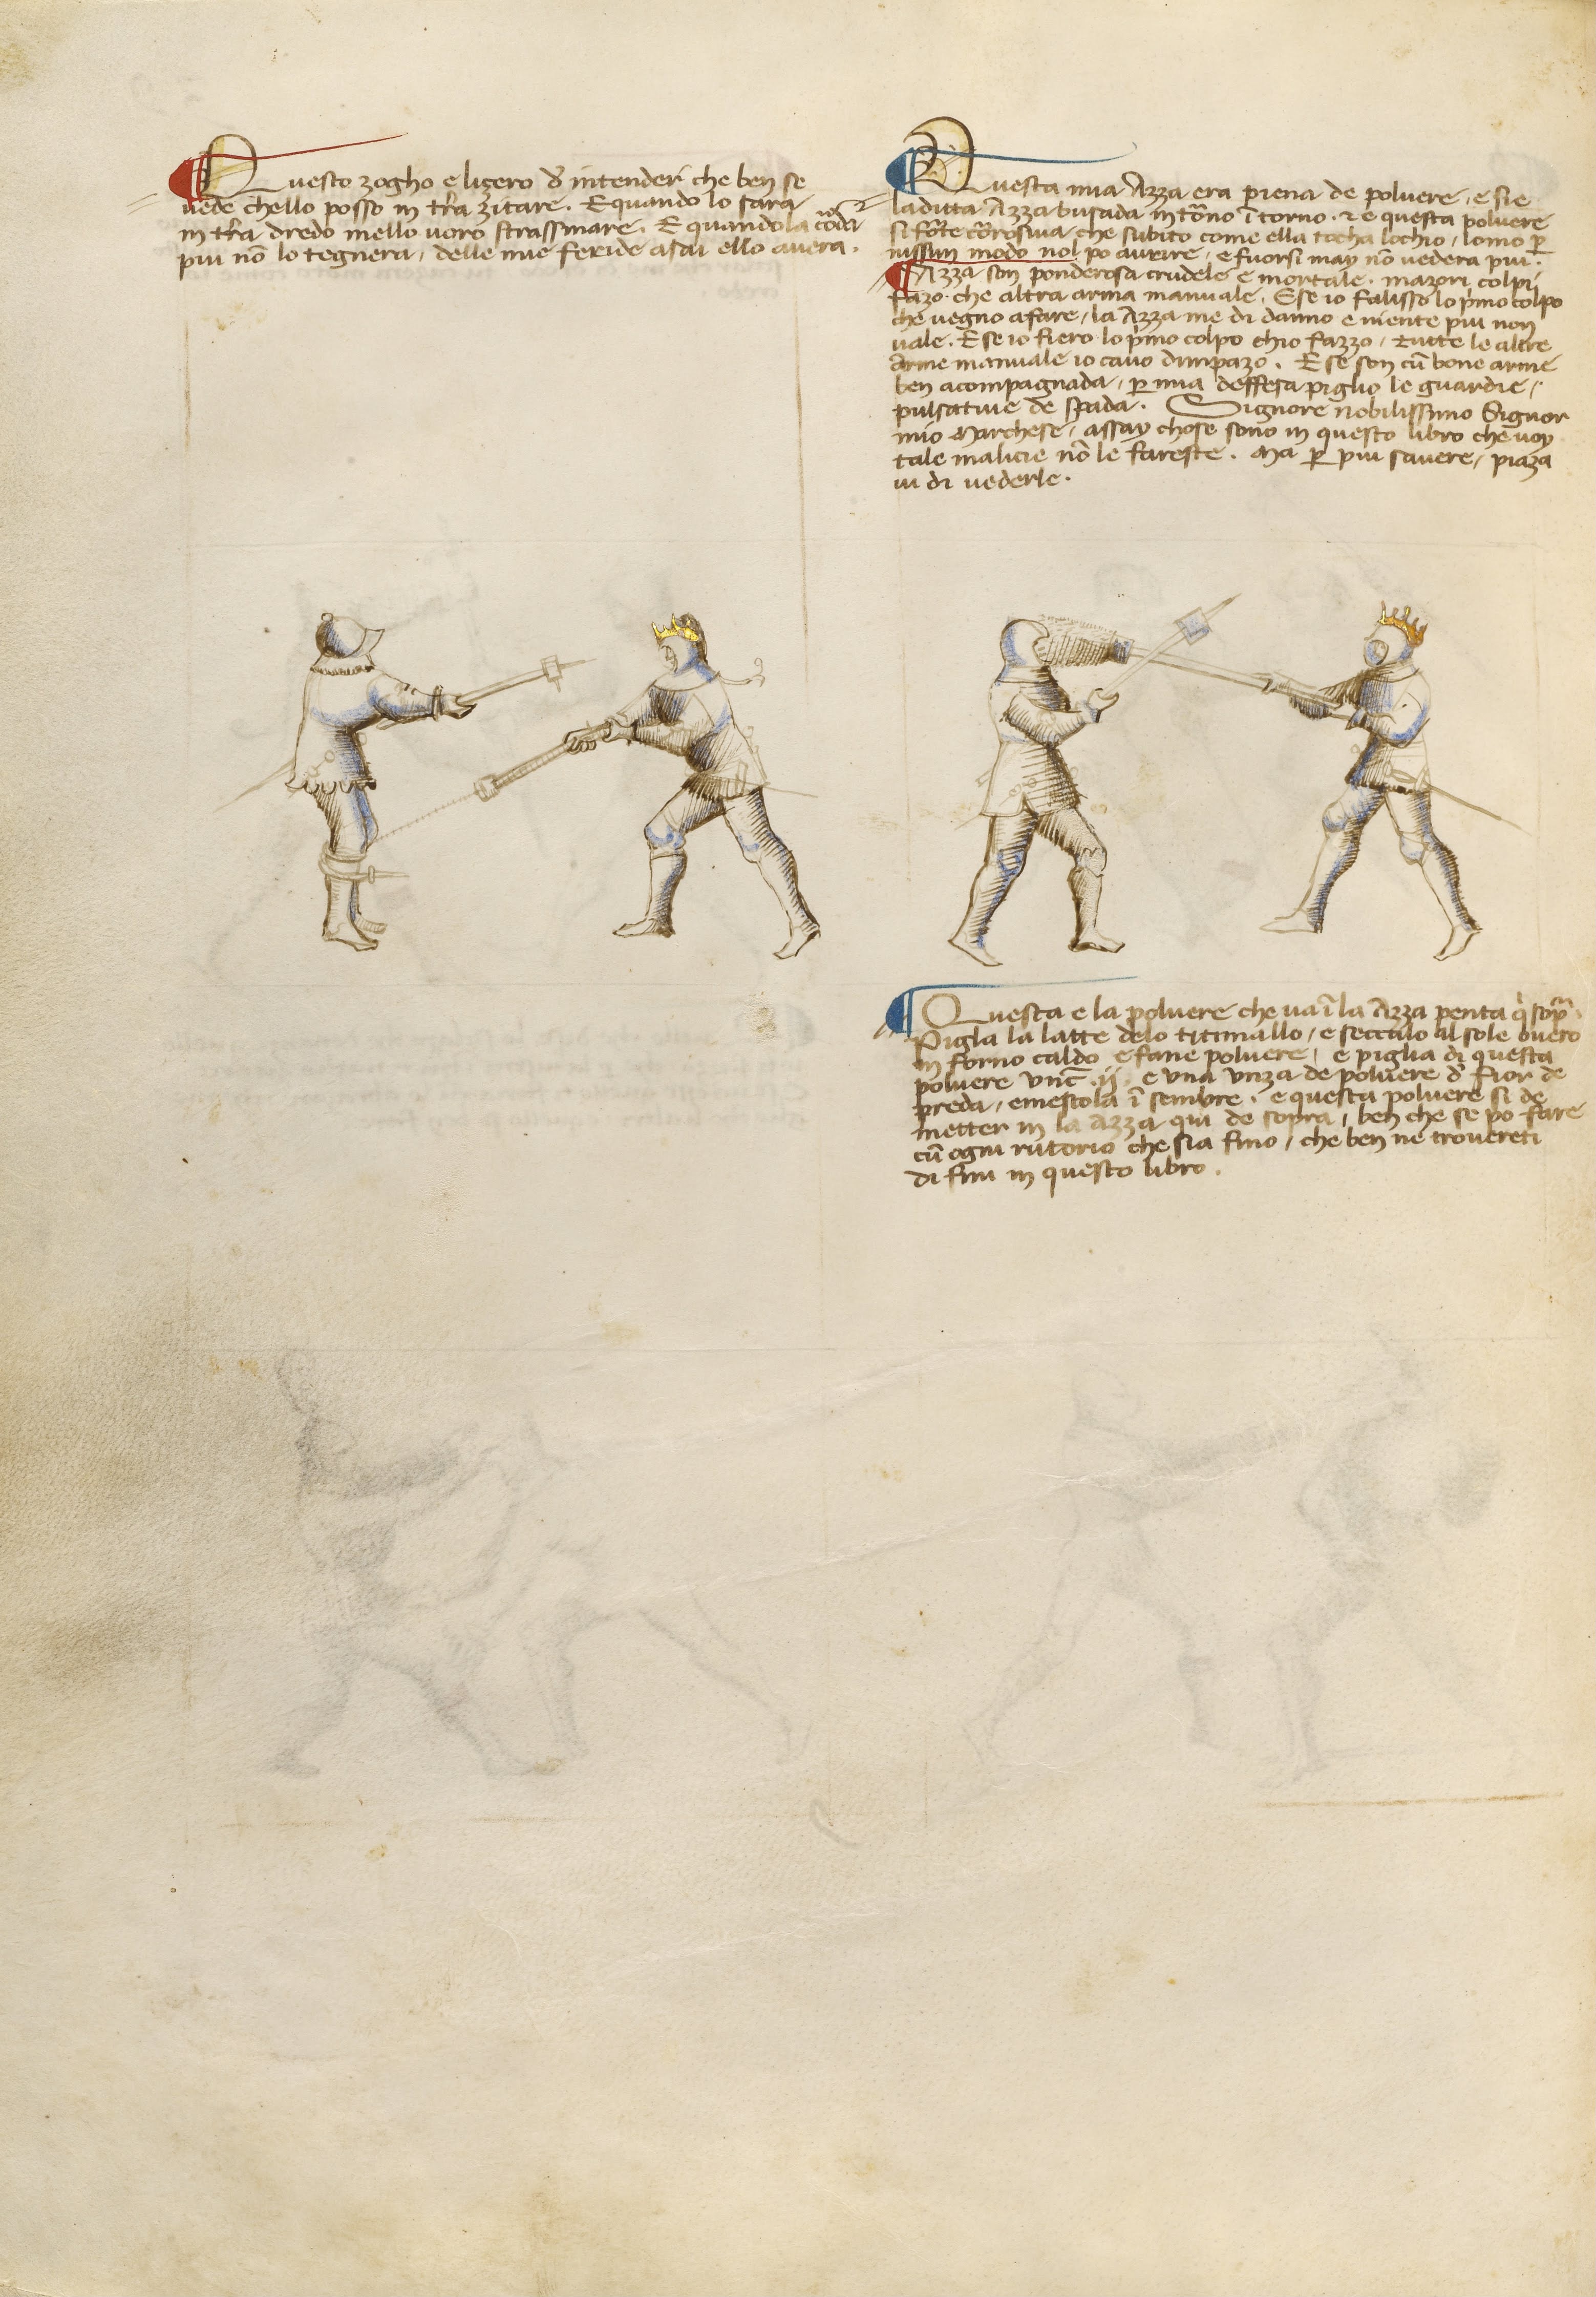 Questo zogho e lizero d intender che ben se
vede chello posso in tera zitare. E quando lo sara
in tera dredo mello voro strassinare. E quando la coda
piu no lo tegnera, delle mie feride asai ello avera.
Questa mia Azza era piena de polvere, e si e
la ditta Azza busada intorno intorno. z e questa polvere
si forte corosiva che subito come ella tocha lochio, lomo per
nissun modo nol po avrire, e fuorsi may no vedera piu.
Azza son ponderosa crudele e mortale. mazori colpi
fazo che altra arma manuale. E se io falisso lo primo colpo
che vegno a fare, la Azza me di danno e niente piu non
vale. E se io fiero lo primo colpo chio fazzo, tutte le altre
arme manuale io cavo dimpazo. E se son cum bone arme
ben acompagnada, per mia deffesa piglio le guardie,
pulsative de spada. Signore nobilissimo Signor
mio Marchese, assay chose sono in questo libro che voy
tale malicie no le fareste. Ma per piu savere, piaza
vi di vederle.
Questa e la polvere che va in la Azza penta qui sopra.
Pigla la latte delo titimallo, e seccalo al sole overo
in forno caldo e fane polvere, e piglia di questa
polvere unc. ij. e una unza de polvere d fior de
preda, e mescola insembre. e questa polvere si de
metter in la Azza qui de sopra, ben che se po fare
cum ogni rutorio che sia fino, che ben ne trovereti
di fini in questo libro.